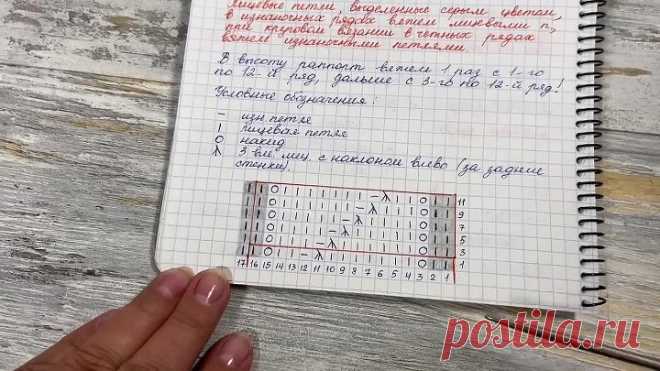 Лицевые петли, выделенные серым цветом,
в изнаночных рядах вяжем лицевыми п,
при круговом вязании в четных рядах
вяжем изнаночными петлями.
В высоту раппорт вяжем 1 раз с 1-го
по 12-й ряд, дальше с 3-го по 12-й ряд!
Условные обозначения:
– изн петля
| лицевая петля
O накид
λ 3 вм. лиц. с наклоном влево (за задние
стенки).
| | O | | | | | | | – λ | | O | | 11
| | O | | | | | | – λ | | | O | | 9
| | O | | | | | – λ | | | | O | | 7
| | O | | | | – λ | | | | | O | | 5
| | O | | | – λ | | | | | | O | | 3
| | O | | – λ | | | | | | | O | | 1
17 16 15 14 13 12 11 10 9 8 7 6 5 4 3 2 1
postila.ru